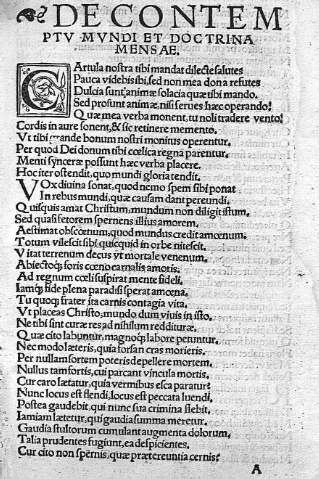 ❧ DE CONTEM
PTV MVNDI ET DOCTRINA
MENSAE.
CArtula nostra tibi mandat dilecte salutes
Pauca videbis ibi, sed non mea dona refutes
Dulcia sunt animæ solacia quæ tibi mando.
Sed prosunt animæ, nisi serues hæc operando!
Quæ mea verba monent, tu noli tradere vento!
Cordis in aure sonent, & sic retinere memento.
Vt tibi grande bonum nostri monitus operentur.
Per quod Dei donum tibi cœlica regna parentur.
Menti synceræ possunt hæc verba placere.
Hoc iter ostendit, quo mundi gloria tendit.
VOx diuina sonat, quod nemo spem sibi ponat
In rebus mundi, quæ causam dant pereundi.
Quisquis amat Christum, mundum non diligit istum.
Sed quasi fetorem spernens illius amorem.
Aestimat obscœnum, quod mundus credit amœnum.
Totum vilescit sibi quicquid in orbe nitescit.
Vitat terrenum decus vt mortale venenum.
Abiectoq; foris cœno carnalis amoris.
Ad regnum cœli suspirat mente fideli.
Iamq; fide plena paradisi sperat amœna.
Tu quoq; frater ita carnis contagia vita.
Vt placeas Christo, mundo dum viuis in isto.
Ne tibi sint curæ res ad nihilum redditturæ.
Quæ cito labuntur, magnoq; labore petuntur.
Nec modo læteris, quia forsan cras morieris.
Per nullam sortem poteris depellere mortem.
Nullus tam fortis, cui parcant vincula mortis.
Cur caro lætatur, quia vermibus esca paratur?
Nunc locus est flendi, locus est peccata luendi.
Postea gaudebit, qui nunc sua crimina flebit.
Iamiam lætetur, qui gaudia summa meretur.
Gaudia stultorum cumulant augmenta dolorum.
Talia prudentes fugiunt, ea despicientes.
Cur cito non spernis, quæ prætereuntia cernis?
A